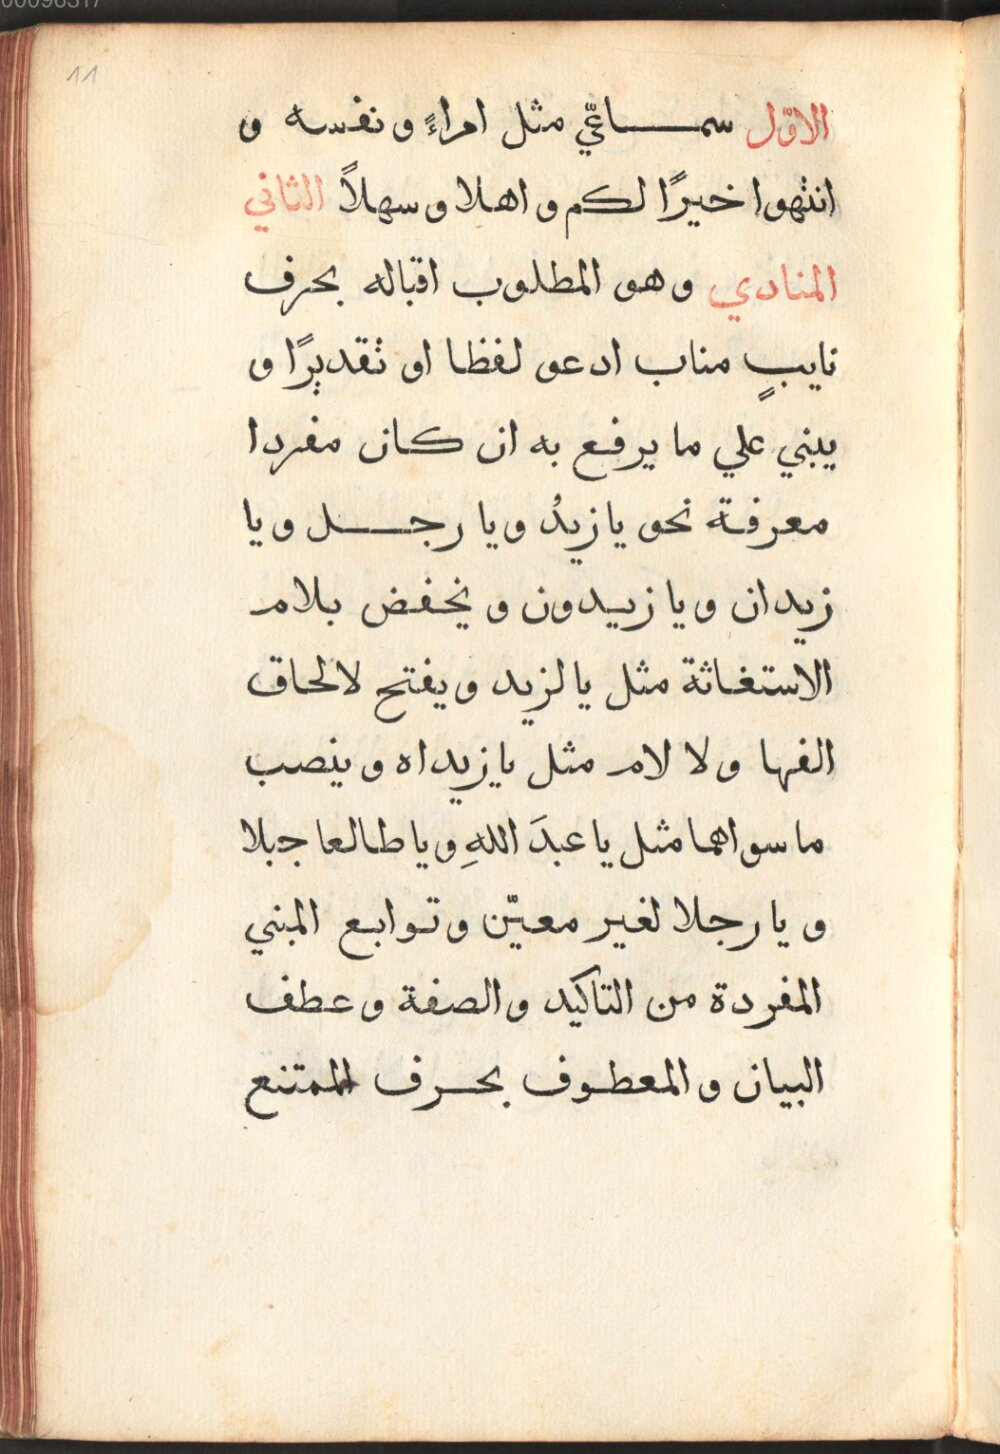 00096317
11
الاوّل سماعّي مثل امراءً و نفسه و
انتهوا خيرًا لكم و اهلا و سهلاً الثاني
المنادي و هو المطلوب اقباله بحرف
نايبٍ مناب ادعو لفظا او تقديرًا و
يبني علي ما يرفع به ان كان مفردا
معرفة نحو يا زيدُ و يا رجل و يا
زيدان و يا زيدون و يخفض بلام
الاستغاثة مثل يا لزيد و يفتح لالحاق
الفها و لا لام مثل يا زيداه و ينصب
ما سواهما مثل يا عبدَ اللهِ و يا طالعا جبلا
و يا رجلا لغير معيّن و توابع المبني
المفردة من التاكيد و الصفة و عطف
البيان و المعطوف بحرف الممتنع